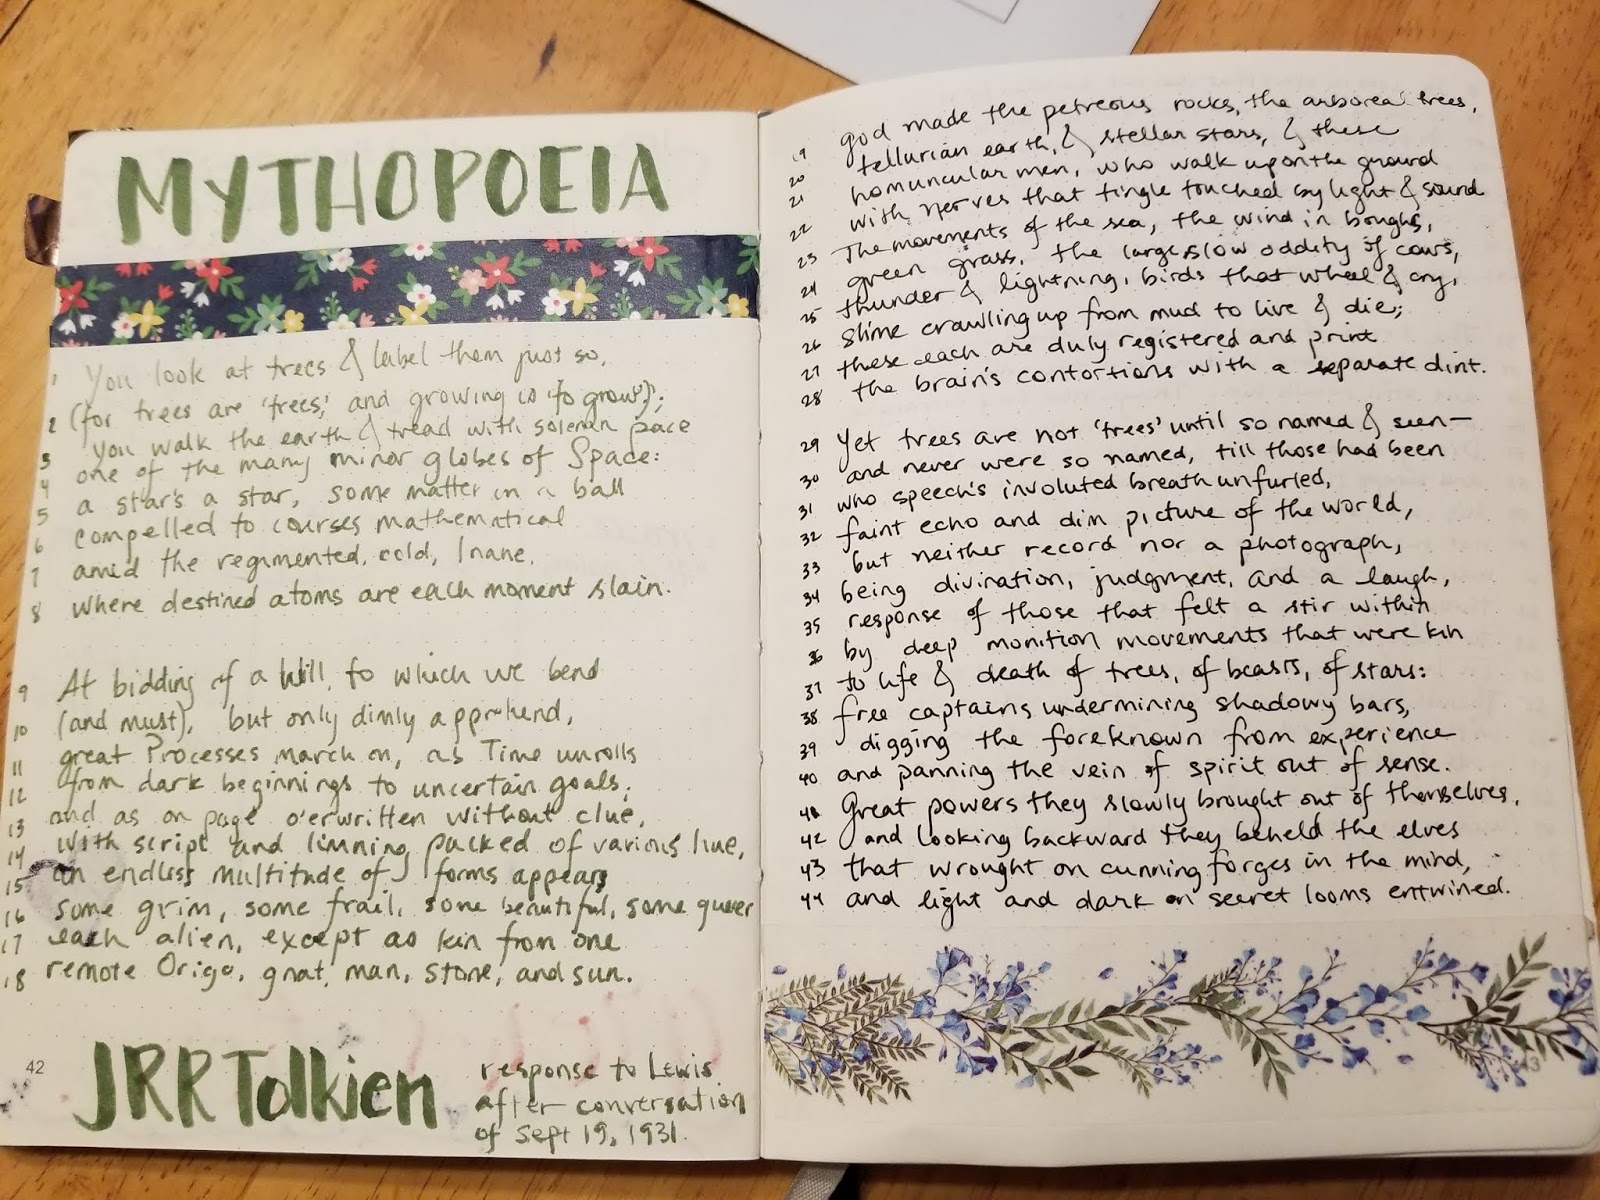 MYTHOPOEIA
1 You look at trees & label them just so,
2 (for trees are 'trees', and growing is 'to grow');
3 You walk the earth & tread with solemn pace
4 one of the many minor globes of Space:
5 a star's a star, some matter in a ball
6 compelled to courses mathematical
7 amid the regimented, cold, Inane,
8 where destined atoms are each moment slain.
9 At bidding of a Will, to which we bend
10 (and must), but only dimly apprehend,
11 great Processes march on, as Time unrolls
12 from dark beginnings to uncertain goals;
13 and as on page o'erwritten without clue,
14 with script and limning packed of various hue,
15 an endless multitude of forms appears
16 some grim, some frail, some beautiful, some queer
17 each alien, except as kin from one
18 remote Origo, gnat, man, stone, and sun.
42
JRR Tolkien
response to Lewis
after conversation
of Sept 19, 1931.
God made the petreous rocks, the arboreal trees,
19 tellurian earth, & stellar stars, & these
20 homuncular men, who walk upon the ground
21 with nerves that tingle touched by light & sound
22 The movements of the sea, the wind in boughs,
23 green grass, the large slow oddity of cows,
24 thunder & lightning, birds that wheel & cry,
25 slime crawling up from mud to live & die;
26 these each are duly registered and print
27 the brain's contortions with a separate dint.
28
29 Yet trees are not 'trees' until so named & seen—
30 and never were so named, till those had been
31 who speech's involuted breath unfurled,
32 faint echo and dim picture of the world,
33 but neither record nor a photograph,
34 being divination, judgment, and a laugh,
35 response of those that felt a stir within
36 by deep monition movements that were kin
37 to life & death of trees, of beasts, of stars:
38 free captains undermining shadowy bars,
39 digging the foreknown from experience
40 and panning the vein of spirit out of sense.
41 Great powers they slowly brought out of themselves,
42 and looking backward they beheld the elves
43 that wrought on cunning forges in the mind,
44 and light and dark on secret looms entwined.
43